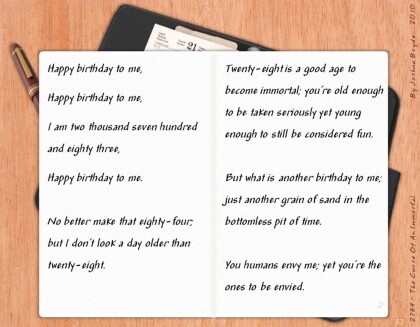 Happy birthday to me,
Happy birthday to me,
I am two thousand seven hundred
and eighty three,
Happy birthday to me.
No better make that eighty-four;
but I don't look a day older than
twenty-eight.
Twenty-eight is a good age to
become immortal; you're old enough
to be taken seriously yet young
enough to still be considered fun.
But what is another birthday to me;
just another grain of sand in the
bottomless pit of time.
You humans envy me; yet you're the
ones to be envied.
By Joshua Boyde - 2010
2784 - The Curse Of An Immortal